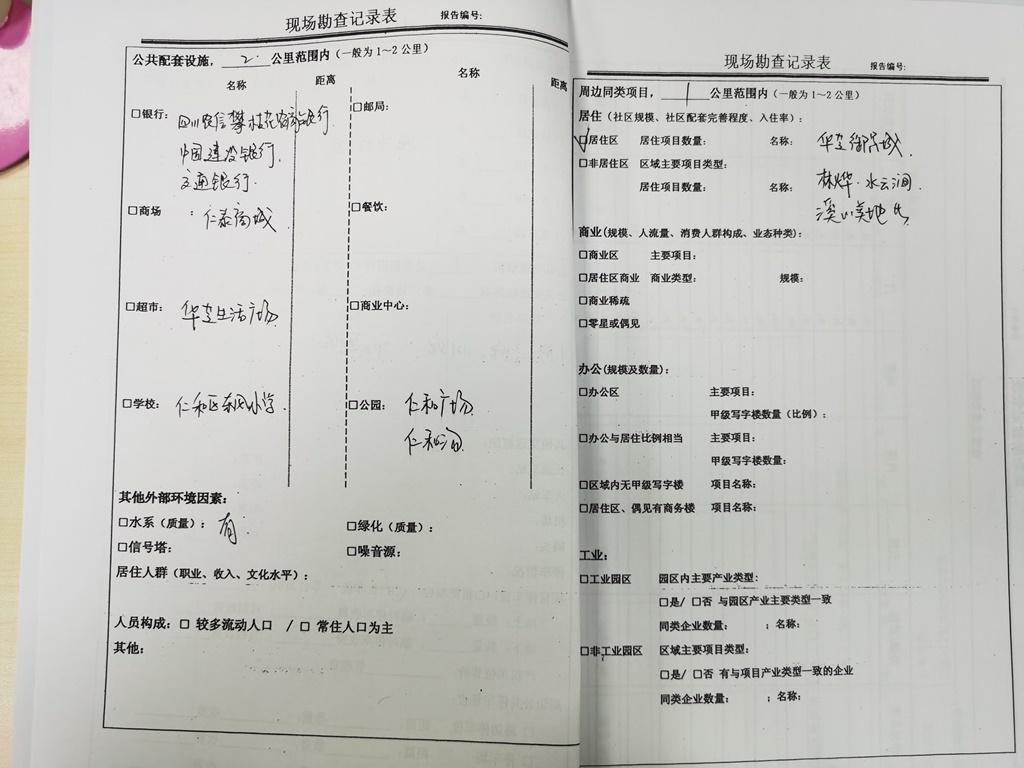 现场勘查记录表 报告编号:
公共配套设施，2.公里范围内（一般为1~2公里）
名称 距离 名称 距离
□银行: 四川农信攀枝花农商银行. □邮局:
中国建设银行.
交通银行.
□商场 : 仁泰商城 □餐饮:
□超市: 华芝生活广场. □商业中心:
□学校: 仁和区东风小学. □公园: 仁和广场.
仁和沟.
其他外部环境因素:
□水系（质量）: 有. □绿化（质量）:
□信号塔: □噪音源:
居住人群（职业、收入、文化水平）:
人员构成: □ 较多流动人口 / □ 常住人口为主
其他:
现场勘查记录表 报告编号:
周边同类项目，1公里范围内（一般为1~2公里）
居住（社区规模、社区配套完善程度、入住率）:
√□居住区 居住项目数量: 名称: 华芝御景城.
□非居住区 区域主要项目类型:
居住项目数量: 名称: 林烨·水云涧.
溪山美地
商业(规模、人流量、消费人群构成、业态种类):
□商业区 主要项目:
□居住区商业 商业类型: 规模:
□商业稀疏
□零星或偶见
办公(规模及数量):
□办公区 主要项目:
甲级写字楼数量（比例）:
□办公与居住比例相当 主要项目:
甲级写字楼数量:
□区域内无甲级写字楼 项目名称:
□居住区、偶见有商务楼 项目名称:
工业:
□工业园区 园区内主要产业类型:
□是/ □否 与园区产业主要类型一致
同类企业数量: ；名称:
□非工业园区 区域主要项目类型:
□是/ □否 有与项目产业类型一致的企业
同类企业数量: ；名称: